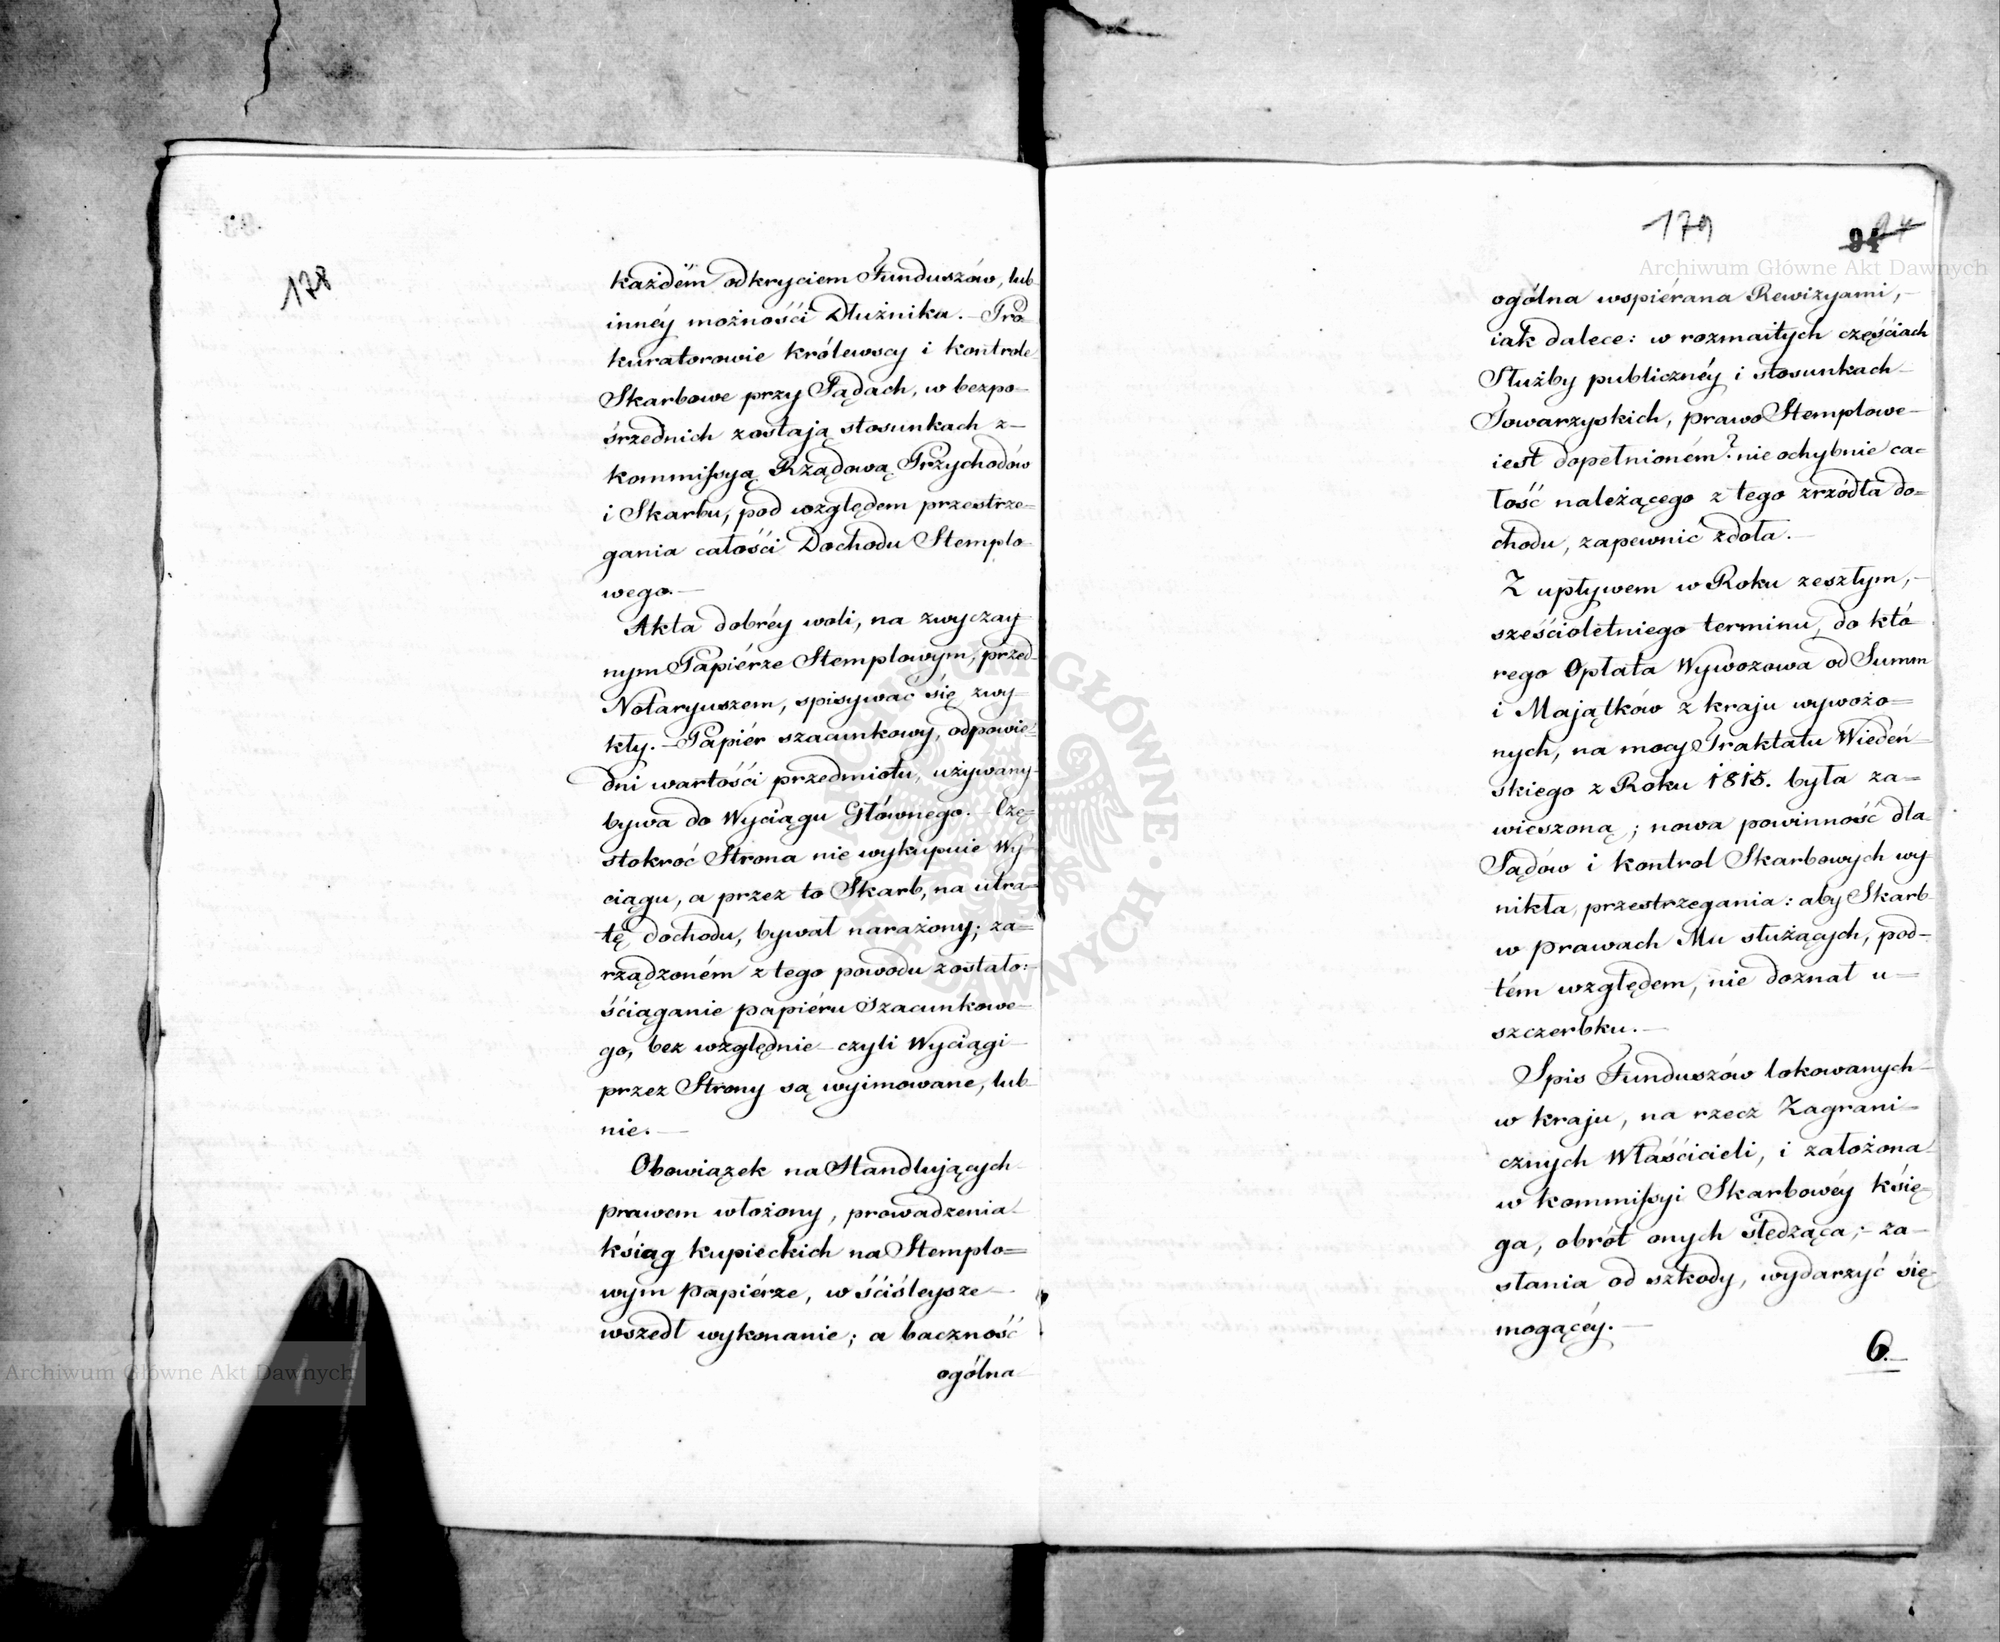 178
każdém odkryciem Funduszów, lub
innéy możności Dłużnika. – Pro
kuratorowie królewscy i kontrole
Skarbowe przy Sądach, w bezpo=
śrzednich zostają stosunkach z –
kommissyą Rządową Przychodów
i Skarbu, pod względem przestrze=
gania całości Dochodu Stemplo
wego. –
Akta dobréy woli, na zwyczay
nym Papiérze Stemplowym, przed
Notaryuszem, spisywać się zwy=
kły. – Papiér szacunkowy, odpowie=
dni wartości przedmiotu, używany
bywa do Wyciągu Głównego. – Czę=
stokroć Strona nie wykupuie Wy=
ciągu, a przez to Skarb, na utra=
tę dochodu, bywał narażony; za=
rządzoném z tego powodu zostało:
ściąganie papiéru Szacunkowe
go, bez względnie – czyli Wyciągi
przez Strony są wyimowane, lub
nie. –
Obowiązek na Handlujących
prawem włożony, prowadzenia
ksiąg kupieckich na Stemplo=
wym papiérze, w ściśleysze –
wszedł wykonanie; a baczność
ogólna
179
94
ogólna wspiérana Rewizyami, –
iak dalece: w rozmaitych częściach
Służby publicznéy i stosunkach
Towarzyskich, prawo Stemplowe –
iest dopełnioném? nieochybnie ca=
łość należącego z tego zrzódła do=
chodu, zapewnić zdoła. –
Z upływem w Roku zeszłym, –
sześcioletniego terminu, do któ
rego Opłata Wywozowa od Summ
i Majątków z kraju wywożo=
nych, na mocy Traktatu Wiedeń
skiego z Roku 1815. była za=
wieszoną; nowa powinność dla
Sądów i kontrol Skarbowych wy
nikła, przestrzegania: aby Skarb
w prawach Mu służących, pod –
tém względem, nie doznał u=
szczerbku. –
Spis Funduszów lokowanych
w kraju, na rzecz Zagrani=
cznych Właścicieli, i założona
w kommissyi Skarbowéy księ=
ga, obrót onych śledząca; – za=
słania od szkody, wydarzyć się
mogącéy. –
6. –
Archiwum Główne Akt Dawnych
Archiwum Główne Akt Dawnych
ARCHIWUM GŁÓWNE AKT DAWNYCH